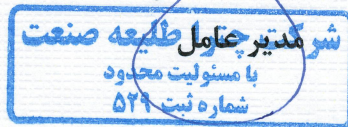 شرکت طلیعه صنعت
مدیر عامل
با مسئولیت محدود
شماره ثبت ۵۲۹